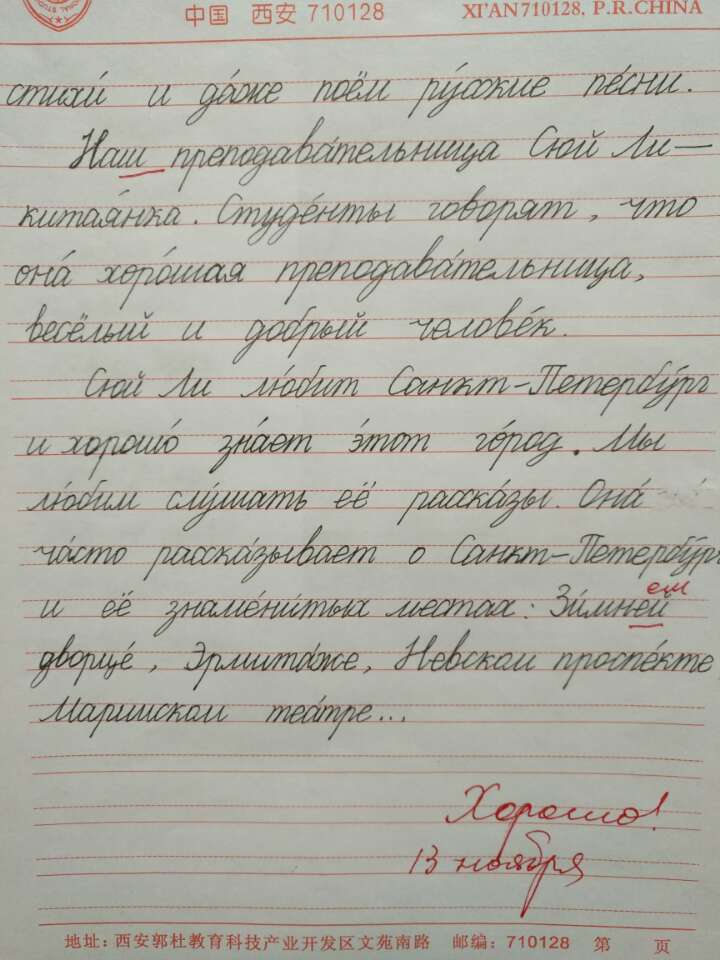 中国 西安 710128 XI'AN 710128, P.R.CHINA
стихи́ и да́же поём ру́сские пе́сни.
Наш преподава́тельница Сюй Ли —
китая́нка. Студе́нты говорят, что
она́ хоро́шая преподава́тельница,
весёлый и добрый челове́к.
Сюй Ли лю́бит Санкт-Петербу́рг
и хорошо́ зна́ет э́тот го́род. Мы
лю́бим слу́шать её расска́зы. Она́
ча́сто расска́зывает о Санкт-Петербу́рг
ем
и её знаме́ни́тых местах: Зи́мней
дворце́, Эрмита́же, Невском проспе́кте,
Мариинском теа́тре...
Хорошо!
13 ноября
地址: 西安郭杜教育科技产业开发区文苑南路 邮编: 710128 第 页